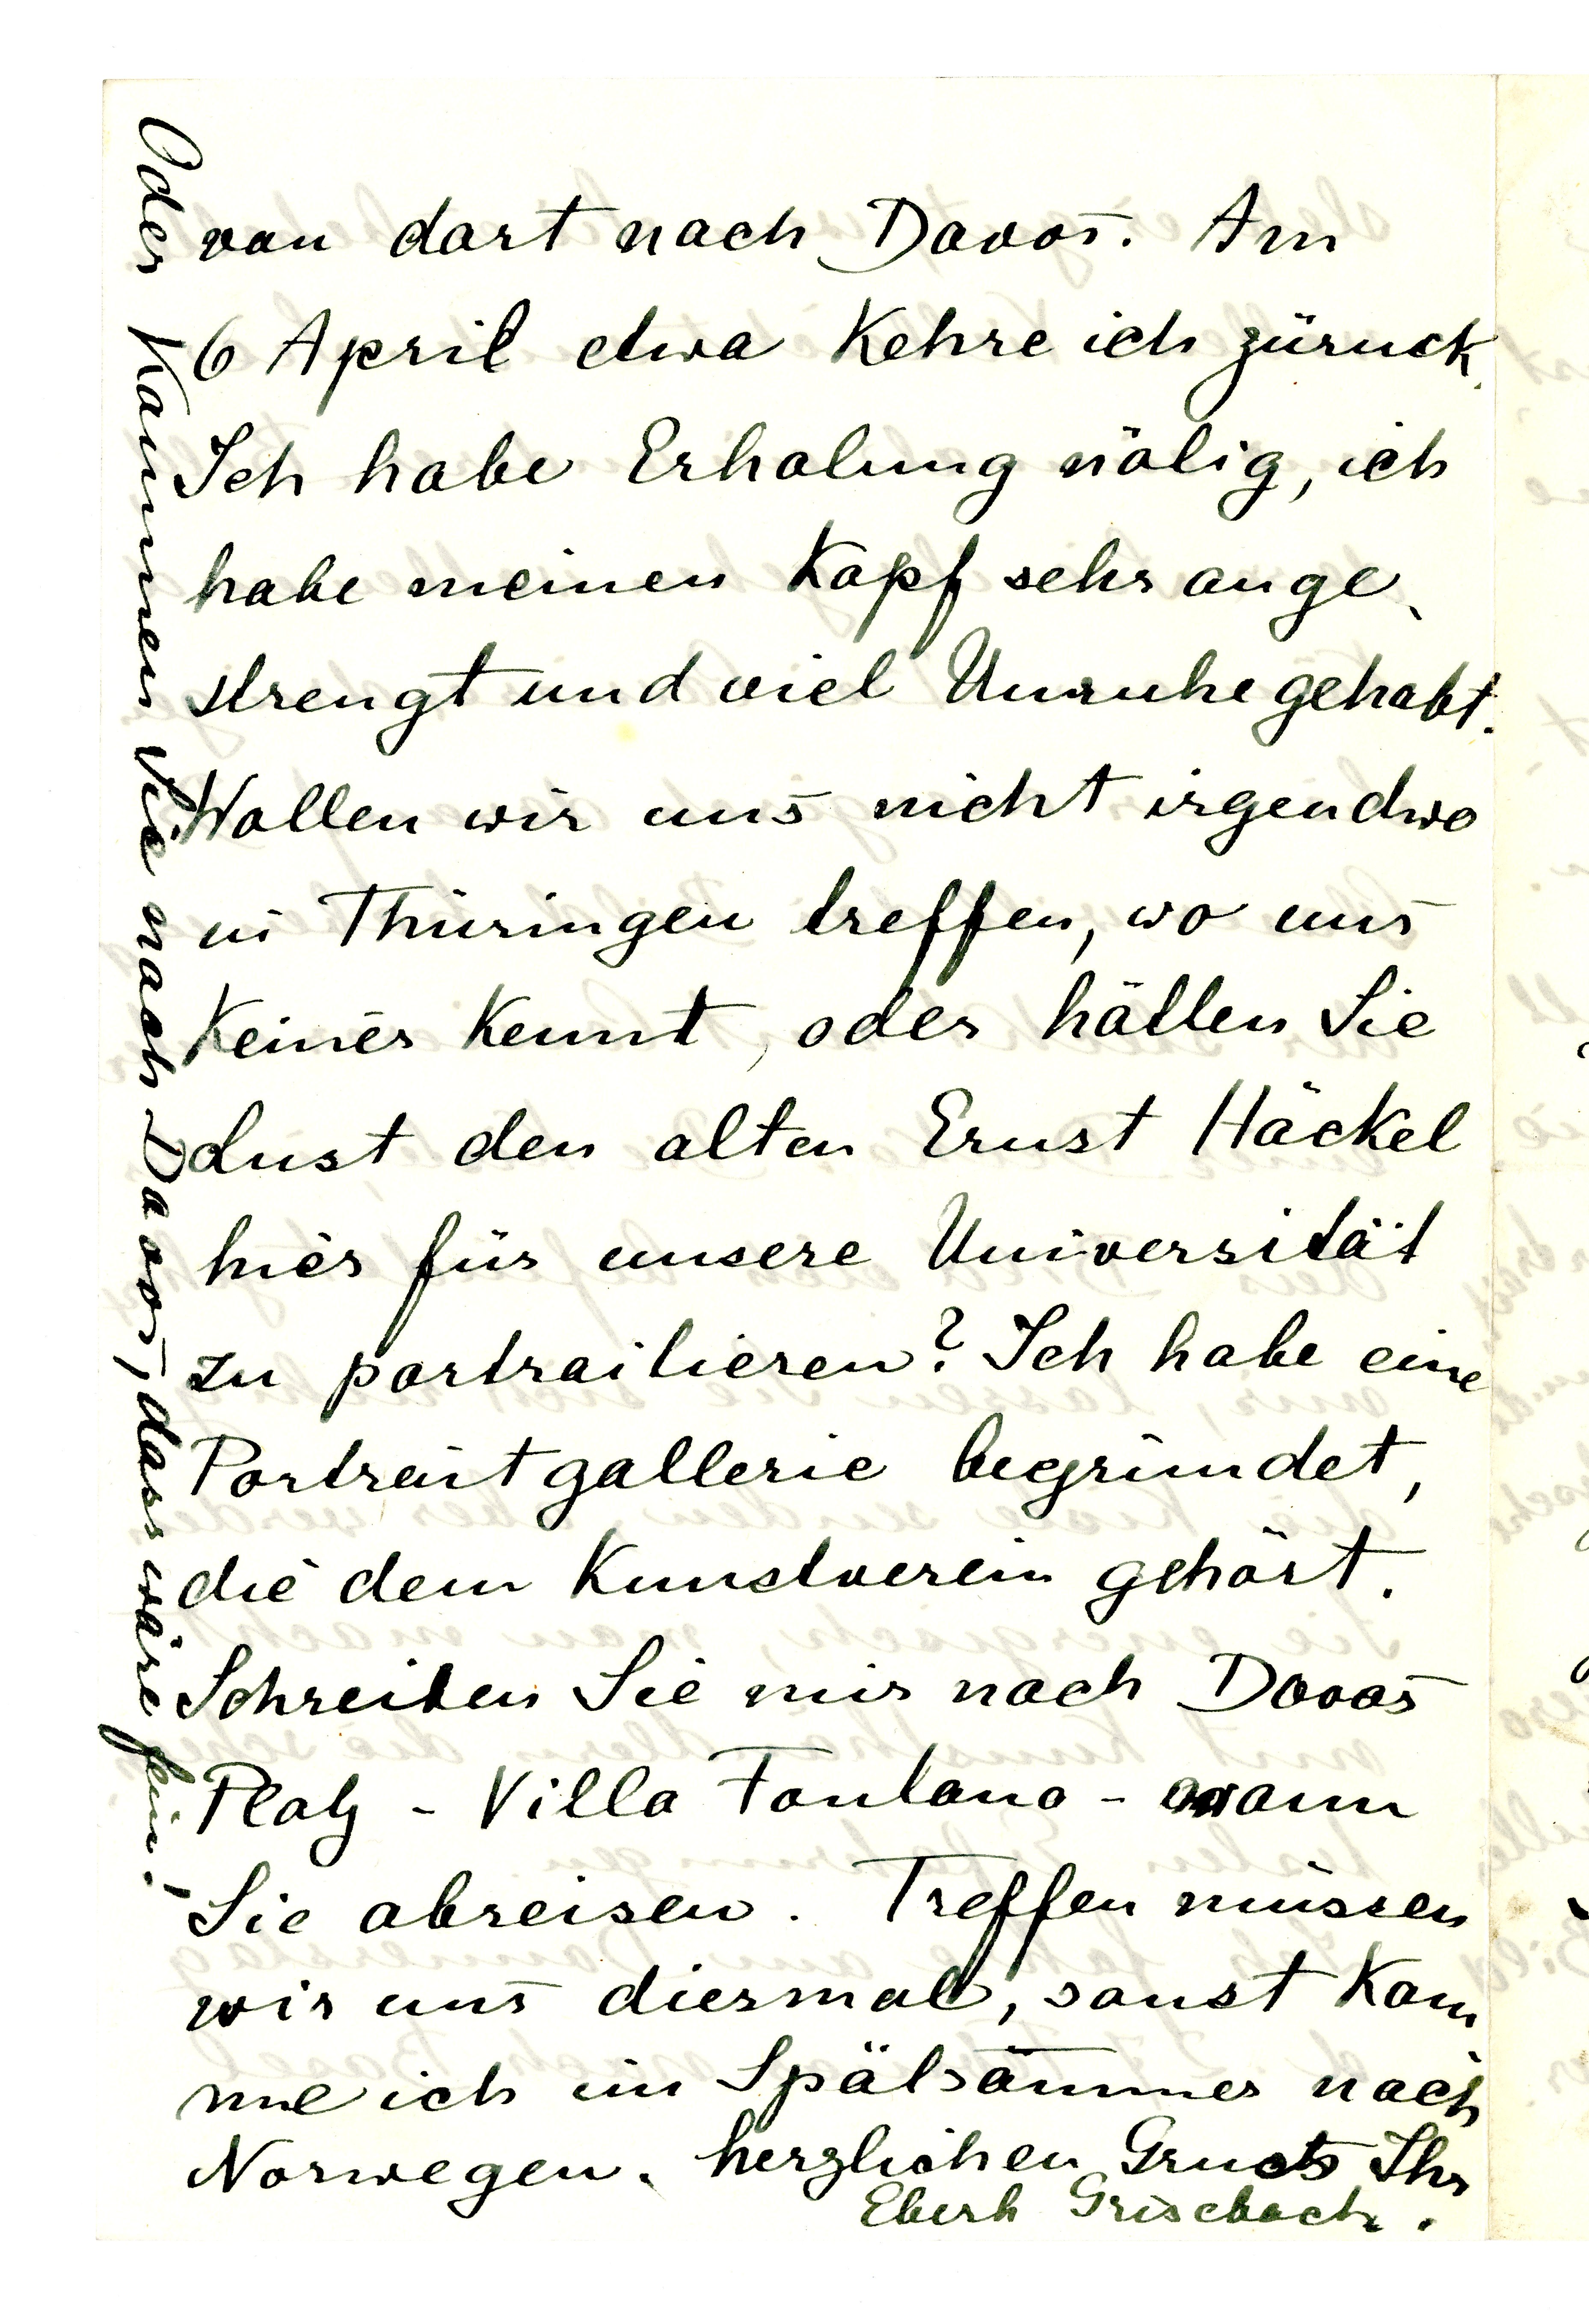 von dort nach Davos. Am
6 April etwa kehre ich zürück.
Ich habe Erholung nötig, ich
habe meinen Kopf sehr ange-
strengt und viel Unruhe gehabt.
Wollen wir uns nicht irgendwo
in Thüringen treffen, wo uns
keiner kennt, oder hätten Sie
Lust den alten Ernst Häckel
hier für unsere Universität
zu portraitieren? Ich habe eine
Portraitgallerie begründet,
die dem Kunstverein gehört.
Schreiben Sie mir nach Davos
Platz - Villa Fontana - wann
Sie abreisen. Treffen müssen
wir uns diesmal, sonst kom
me ich im Spätsommer nach
Norwegen. herzlichen Gruss Ihr
Eberh Grisebach.
Oder kommen Sie nach Davos, dass wäre fein!